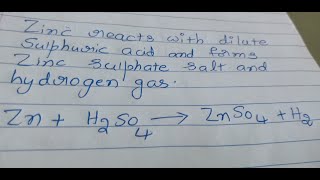 Zinc reacts with dilute
Sulphuric acid and forms
Zinc sulphate salt and
hydrogen gas.
Zn + H₂SO₄ → ZnSO₄ + H₂